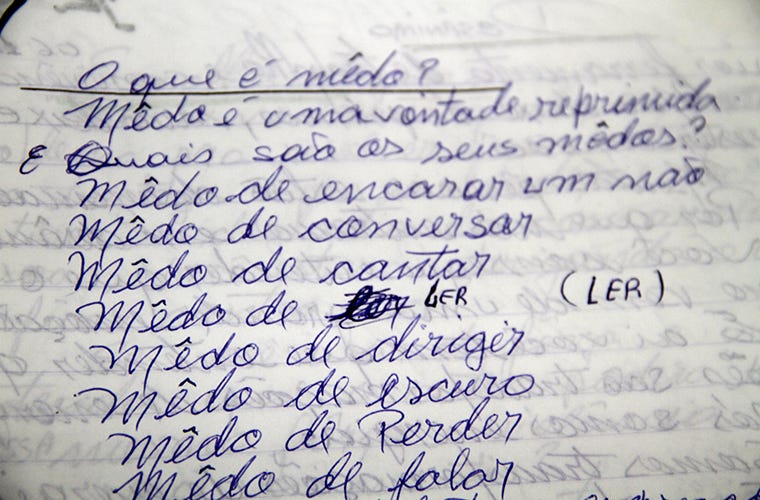 O que é mêdo?
Mêdo é uma vontade reprimida
E Quais são os seus mêdos?
Mêdo de encarar um não
Mêdo de conversar
Mêdo de cantar
Mêdo de LER (LER)
Mêdo de dirigir
Mêdo de escuro
Mêdo de Perder
Mêdo de falar